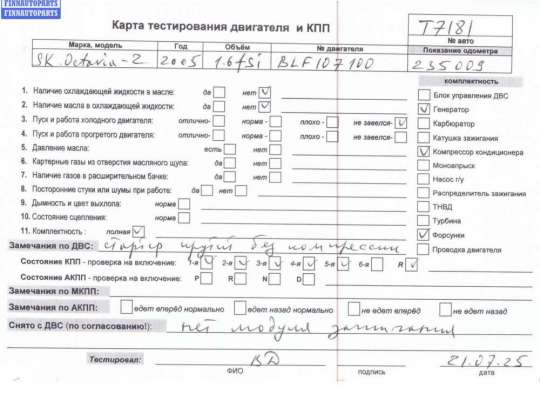 FINNAUTOPARTS
AUTOPARTS
Карта тестирования двигателя и КПП
T7181
№ авто
Марка, модель Год Объём № двигателя Показание одометра
SK. Octavia-2 2005 1.6 fSi BLF107100 235009
комплектность
1. Наличие охлаждающей жидкости в масле: да нет
2. Наличие масла в охлаждающей жидкости: да нет
3. Пуск и работа холодного двигателя: отлично- норма - плохо - не завелся-
4. Пуск и работа прогретого двигателя: отлично- норма - плохо- не завелся-
5. Давление масла: есть нет
6. Картерные газы из отверстия масляного щупа: да нет
7. Наличие газов в расширительном бачке: да нет
8. Посторонние стуки или шумы при работе: да нет
9. Дымность и цвет выхлопа: норма
10. Состояние сцепления: норма
11. Комплектность : полная
Блок управления ДВС
Генератор
Карбюратор
Катушка зажигания
Компрессор кондиционера
Моновпрыск
Насос г/у
Распределитель зажигания
ТНВД
Турбина
Форсунки
Проводка двигателя
Замечания по ДВС: стартер крутит без компрессии
Состояние КПП - проверка на включение: 1-я 2-я 3-я 4-я 5-я 6-я R
Состояние АКПП - проверка на включение: P R N D
Замечания по МКПП:
Замечания по АКПП: едет вперёд нормально едет назад нормально не едет вперёд не едет назад
Снято с ДВС (по согласованию!): нет модуля зажигания
Тестировал: ВД 21.07.25
ФИО подпись дата